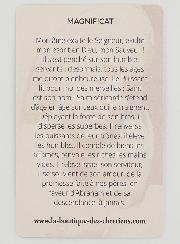 MAGNIFICAT
Mon âme exalte le Seigneur, exulte
mon esprit en Dieu, mon Sauveur !
Il s'est penché sur son humble
servante ; désormais, tous les âges
me diront bienheureuse. Le Puissant
fit pour moi des merveilles ; Saint
est son nom ! Sa miséricorde s'étend
d'âge en âge sur ceux qui le craignent.
Déployant la force de son bras, il
disperse les superbes. Il renverse
les puissants de leurs trônes, il élève
les humbles. Il comble de biens les
affamés, renvoie les riches les mains
vides. Il relève Israël son serviteur,
il se souvient de son amour, de la
promesse faite à nos pères, en
faveur d'Abraham et de sa
descendance à jamais.
www.la-boutique-des-chretiens.com